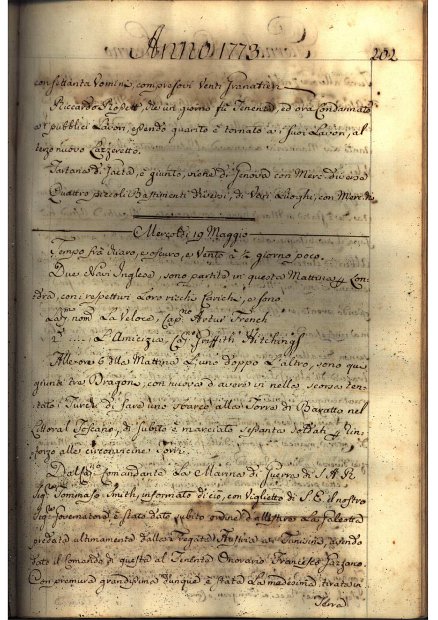 Anno 1773. 202
con settanta Uomini, compresovi Venti Granatieri.
Riccardo Roset, che un giorno fù Tenente, ed ora Condannato
a i pubblici Lavori, essendo guarito è tornato a i suoi Lavori, al
terzo nuovo Lazzeretto.
Tartana di Gaeta, è giunta, viene di Genova con Merc. diverse
Quattro piccoli Bastimenti Diversi, di Varj Luoghi, con Merc.
Mercoldi 19 Maggio
Tempo frà chiaro, e oscuro, e Vento a ½ giorno poco.
Due Navi Inglesi, sono partite in questa Mattina p Lon-
dra, con i respettivi Loro ricchi Carichi, e sono.
La p.ma nom.ta La Veloce, Cap.no Artur French
2.da ..... L'Amicizia, Cap.no Griffith Hitchings
Alle ore 6 della Mattina L'uno doppo L'altro, sono quà
giunti tre Dragoni, con nuova d'avere in nella scorsa ten-
tato i Turchi di fare uno sbarco alla Torre di Baratto nel
Littoral Toscano, di subito è marciato sessanta soldati p rin-
forzo alle circonvicine Torri.
Dal Comandante La Marina di Guerra di S. A. R.
Sig.re Tommaso Smith, informato di ciò, con Viglietto di S. E. il nostro
Sig.re Governatore, è stato dato subito ordine d'allestire La Galeotta
predata ultimamente dalla Fregata Austria a i Tunisini, avendo
dato il Comando di questa al Tenente Onorario Francesco Gazzano.
Con premura grandissima dunque è stata a la medesima tirata in
Terra